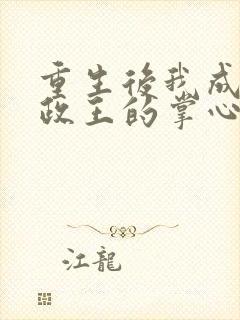 重生後我成
政王的掌心
江龍